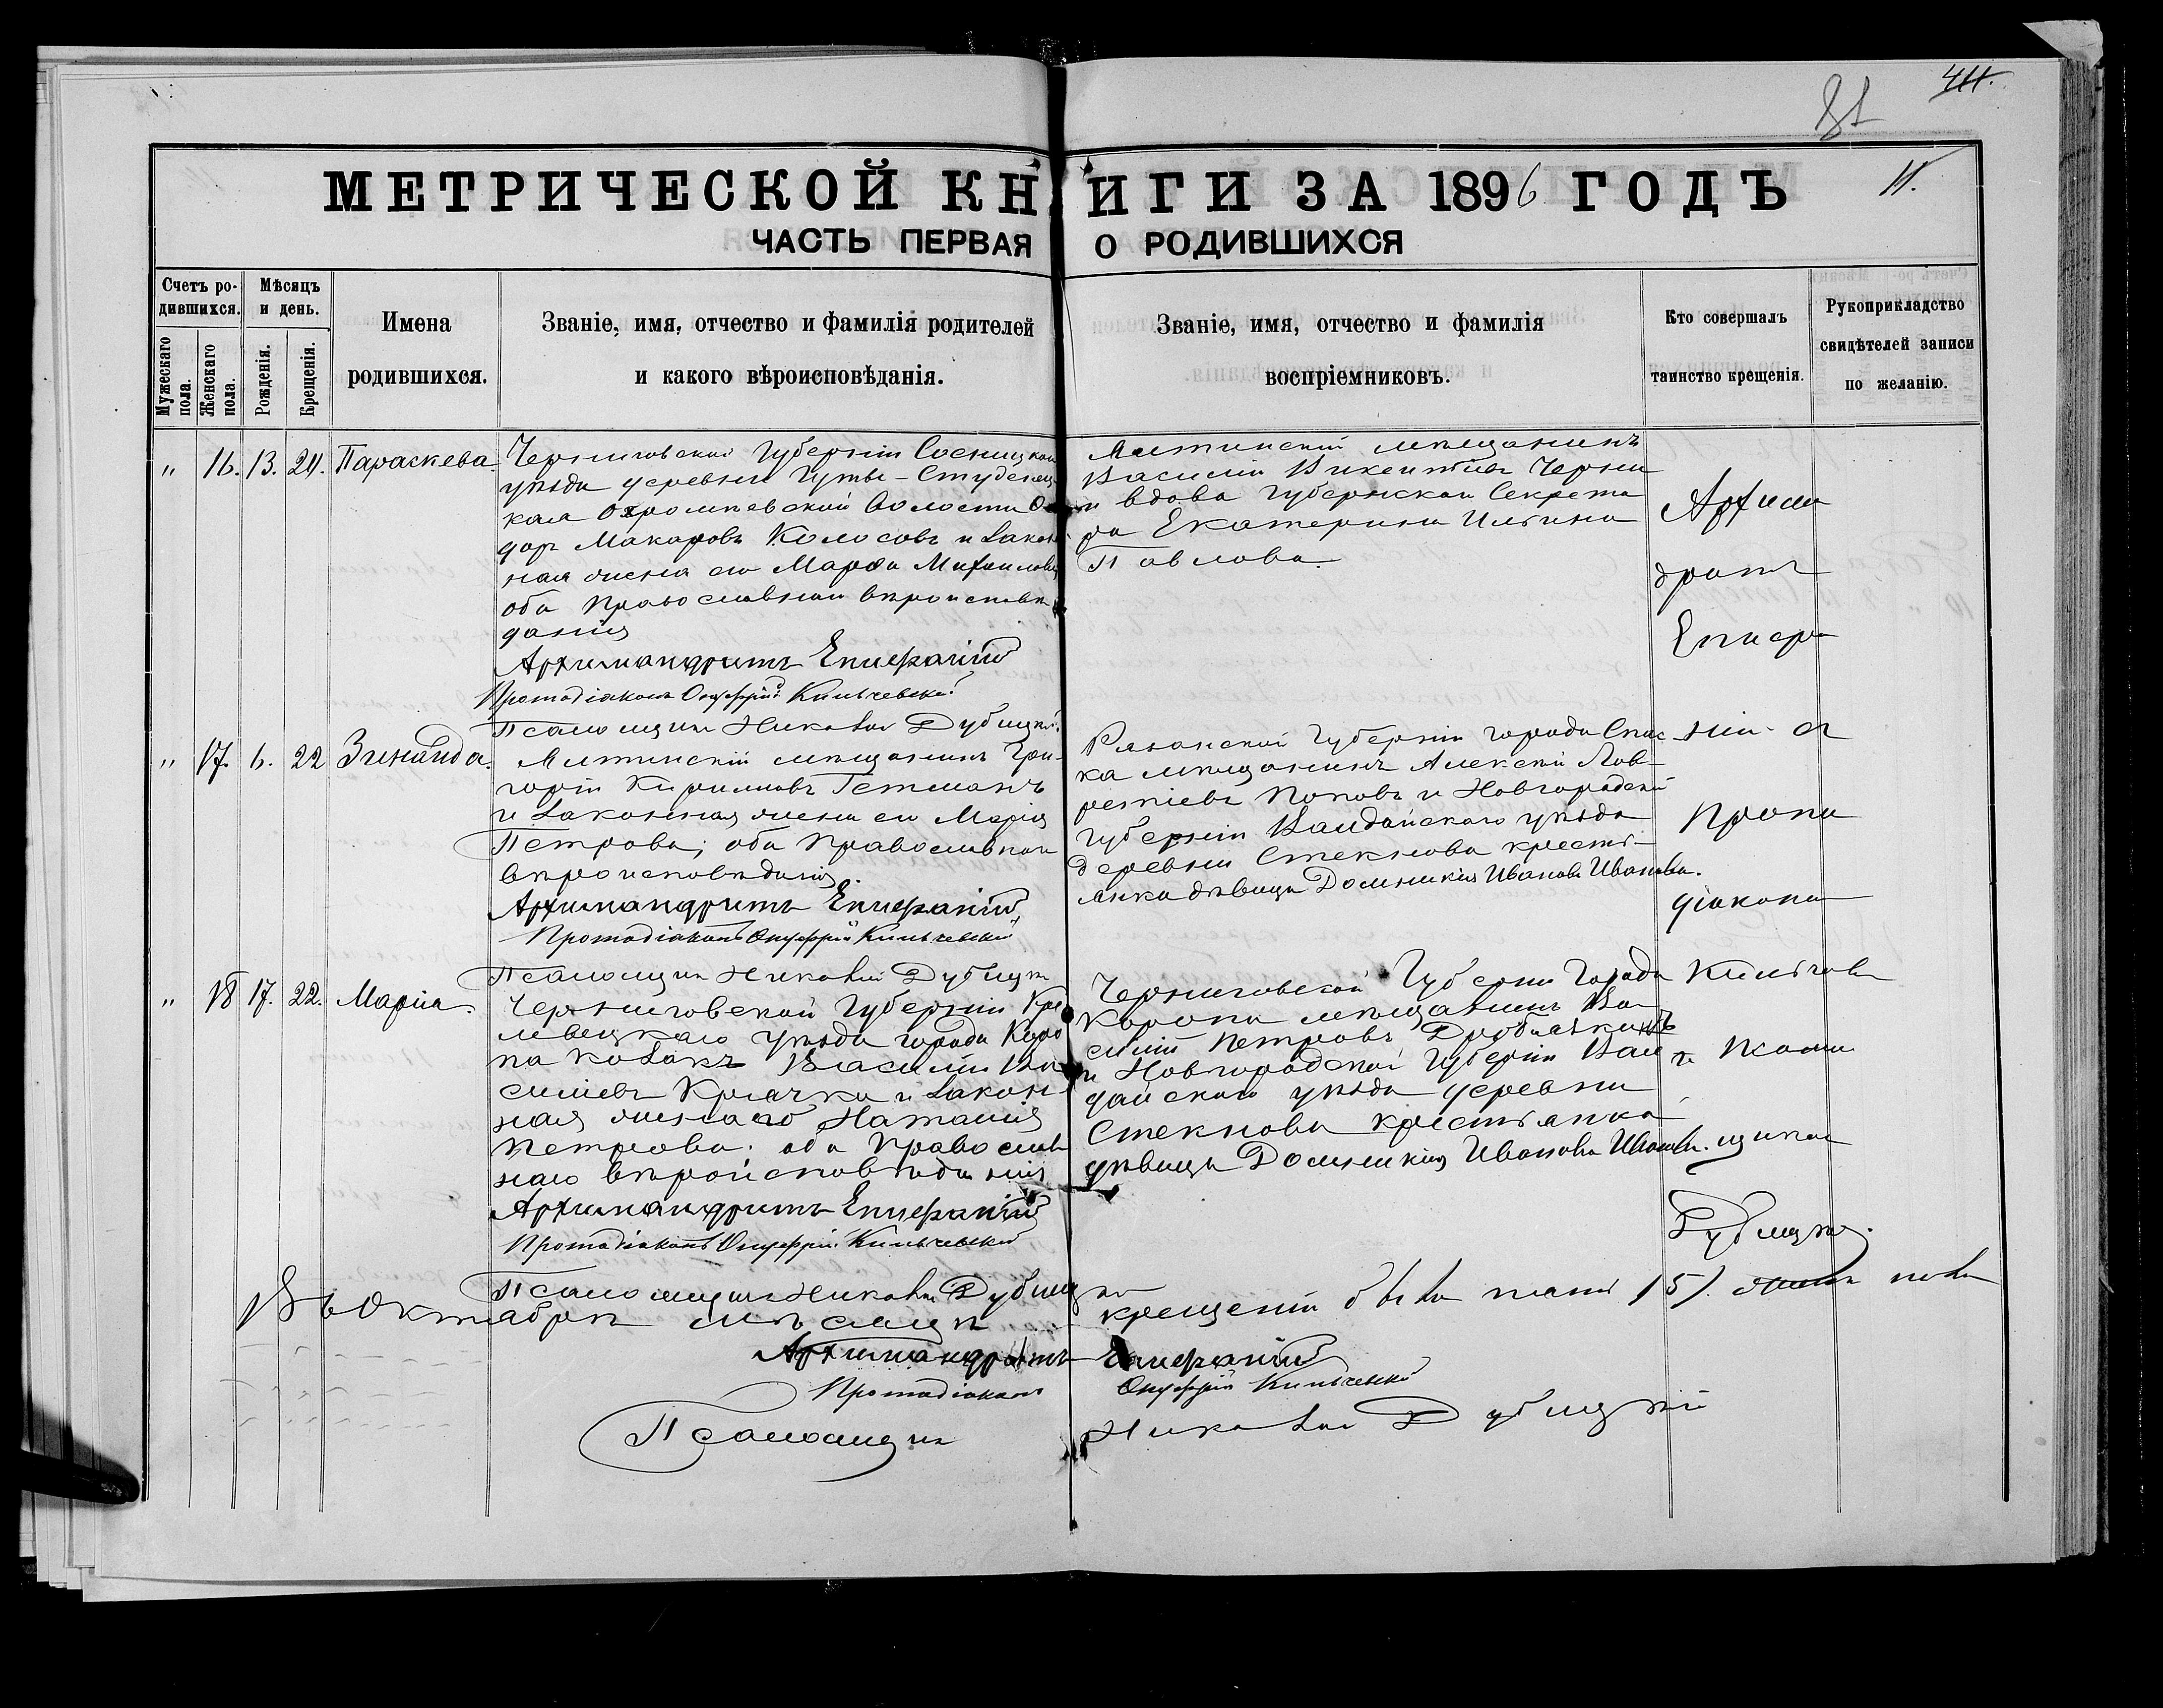 81
411.
11.
МЕТРИЧЕСКОЙ КНИГИ ЗА 1896 ГОДЪ
ЧАСТЬ ПЕРВАЯ О РОДИВШИХСЯ
Счетъ ро-
дившихся.
Мужескаго пола.
Женскаго пола.
Мѣсяцъ
и день.
Рожденія.
Крещенія.
Имена
родившихся.
Званіе, имя, отчество и фамилія родителей
и какого вѣроисповѣданія.
Званіе, имя, отчество и фамилія
воспріемниковъ.
Кто совершалъ
таинство крещенія.
Рукоприкладство
свидѣтелей записи
по желанію.
" 16. 13. 24. Параскева
Черниговской Губерніи Сосницкаго
уѣзда деревни Гуты-Студенец
кая Охромѣевской Волости
дор Макаровъ Колосовъ и закон
ная жена его Марѳа Михаилова
оба православнаго вѣроисповѣ
данія
Архимандритъ Епифаній
Протодіаконъ Онуфрій Кильчевскій
Псаломщикъ Николай Дубицкій
мѣщанинъ
Василій Викентіевъ Черни
и вдова Губернскаго Секрета
ра Екатерина Ильина
Павлова
" 17. 6. 22 Зинаида.
мѣщанинъ Гри-
горій Кириловъ Гетманъ
и законная жена его Марія
Петрова; оба православнаго
вѣроисповѣданія.
Архимандритъ Епифаній
Протодіаконъ Онуфрій Кильчевскій
Псаломщикъ Николай Дубицкій
Рязанской Губерніи города Спас
ка мѣщанинъ Алексѣй Лав-
рентіевъ Поповъ и Новгородской
губерніи Валдайскаго уѣзда
деревни Стекнова крестъ-
янка дѣвица Домникія Иванова Иванова.
" 18 17. 22. Марія.
Черниговской Губерніи Кро
левецкаго уѣзда города Коро
па козакъ Василій Ва
силіевъ Кргачка и закон
ная жена его Наталія
Петрова. оба православ
наго вѣроисповѣданія
Архимандритъ Епифаній
Протодіаконъ Онуфрій Кильчевскій
Псаломщикъ Николай Дубицкій
Черниговской Губерніи Города
Коропа мѣщанинъ Ва
силій Петровъ
и Новгородской Губерніи Вал
дайскаго уѣзда деревни
Стекнова крестьянка
дѣвица Домникія Иванова Иванова.
Архиман
дритъ
Епифа
ній съ
прото
діакономъ
Кильчевс
и псалом
щикомъ
Дубицкимъ.
Въ Октябрѣ мѣсяцѣ крещеній было
Архимандритъ Епифаній
Протодіаконъ Онуфрій Кильчевскій
Псаломщикъ Николай Дубицкій